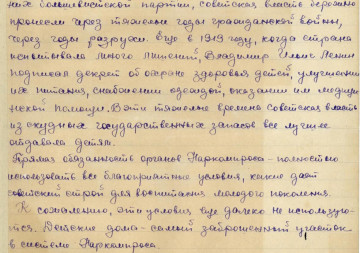 них большевистской партии, советская власть бережно
пронесла через тяжелые годы гражданской войны,
через годы разрухи. Еще в 1919 году, когда страна
испытывала много лишений, Владимир Ильич Ленин
подписал декрет об охране здоровья детей, улучшении
их питания, снабжении одеждой, оказании им медици
нской помощи. В эти тяжелые времена советская власть
из скудных государственных запасов все лучшее
отдавала детям.
Прямая обязанность органов Наркомпроса - полностью
использовать все благоприятные условия, какие дает
советский строй для воспитания молодого поколения.
К сожалению, эти условия еще далеко не использую-
тся. Детские дома - самый заброшенный участок
в системе Наркомпроса.